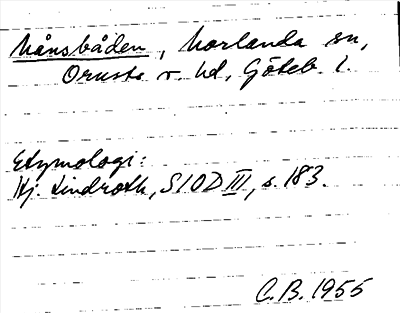 Månsbåden, Morlanda sn,
Orusts v. hd, Göteb. l.
Etymologi:
Hj. Lindroth, SIOD III, s. 183.
C.B. 1955